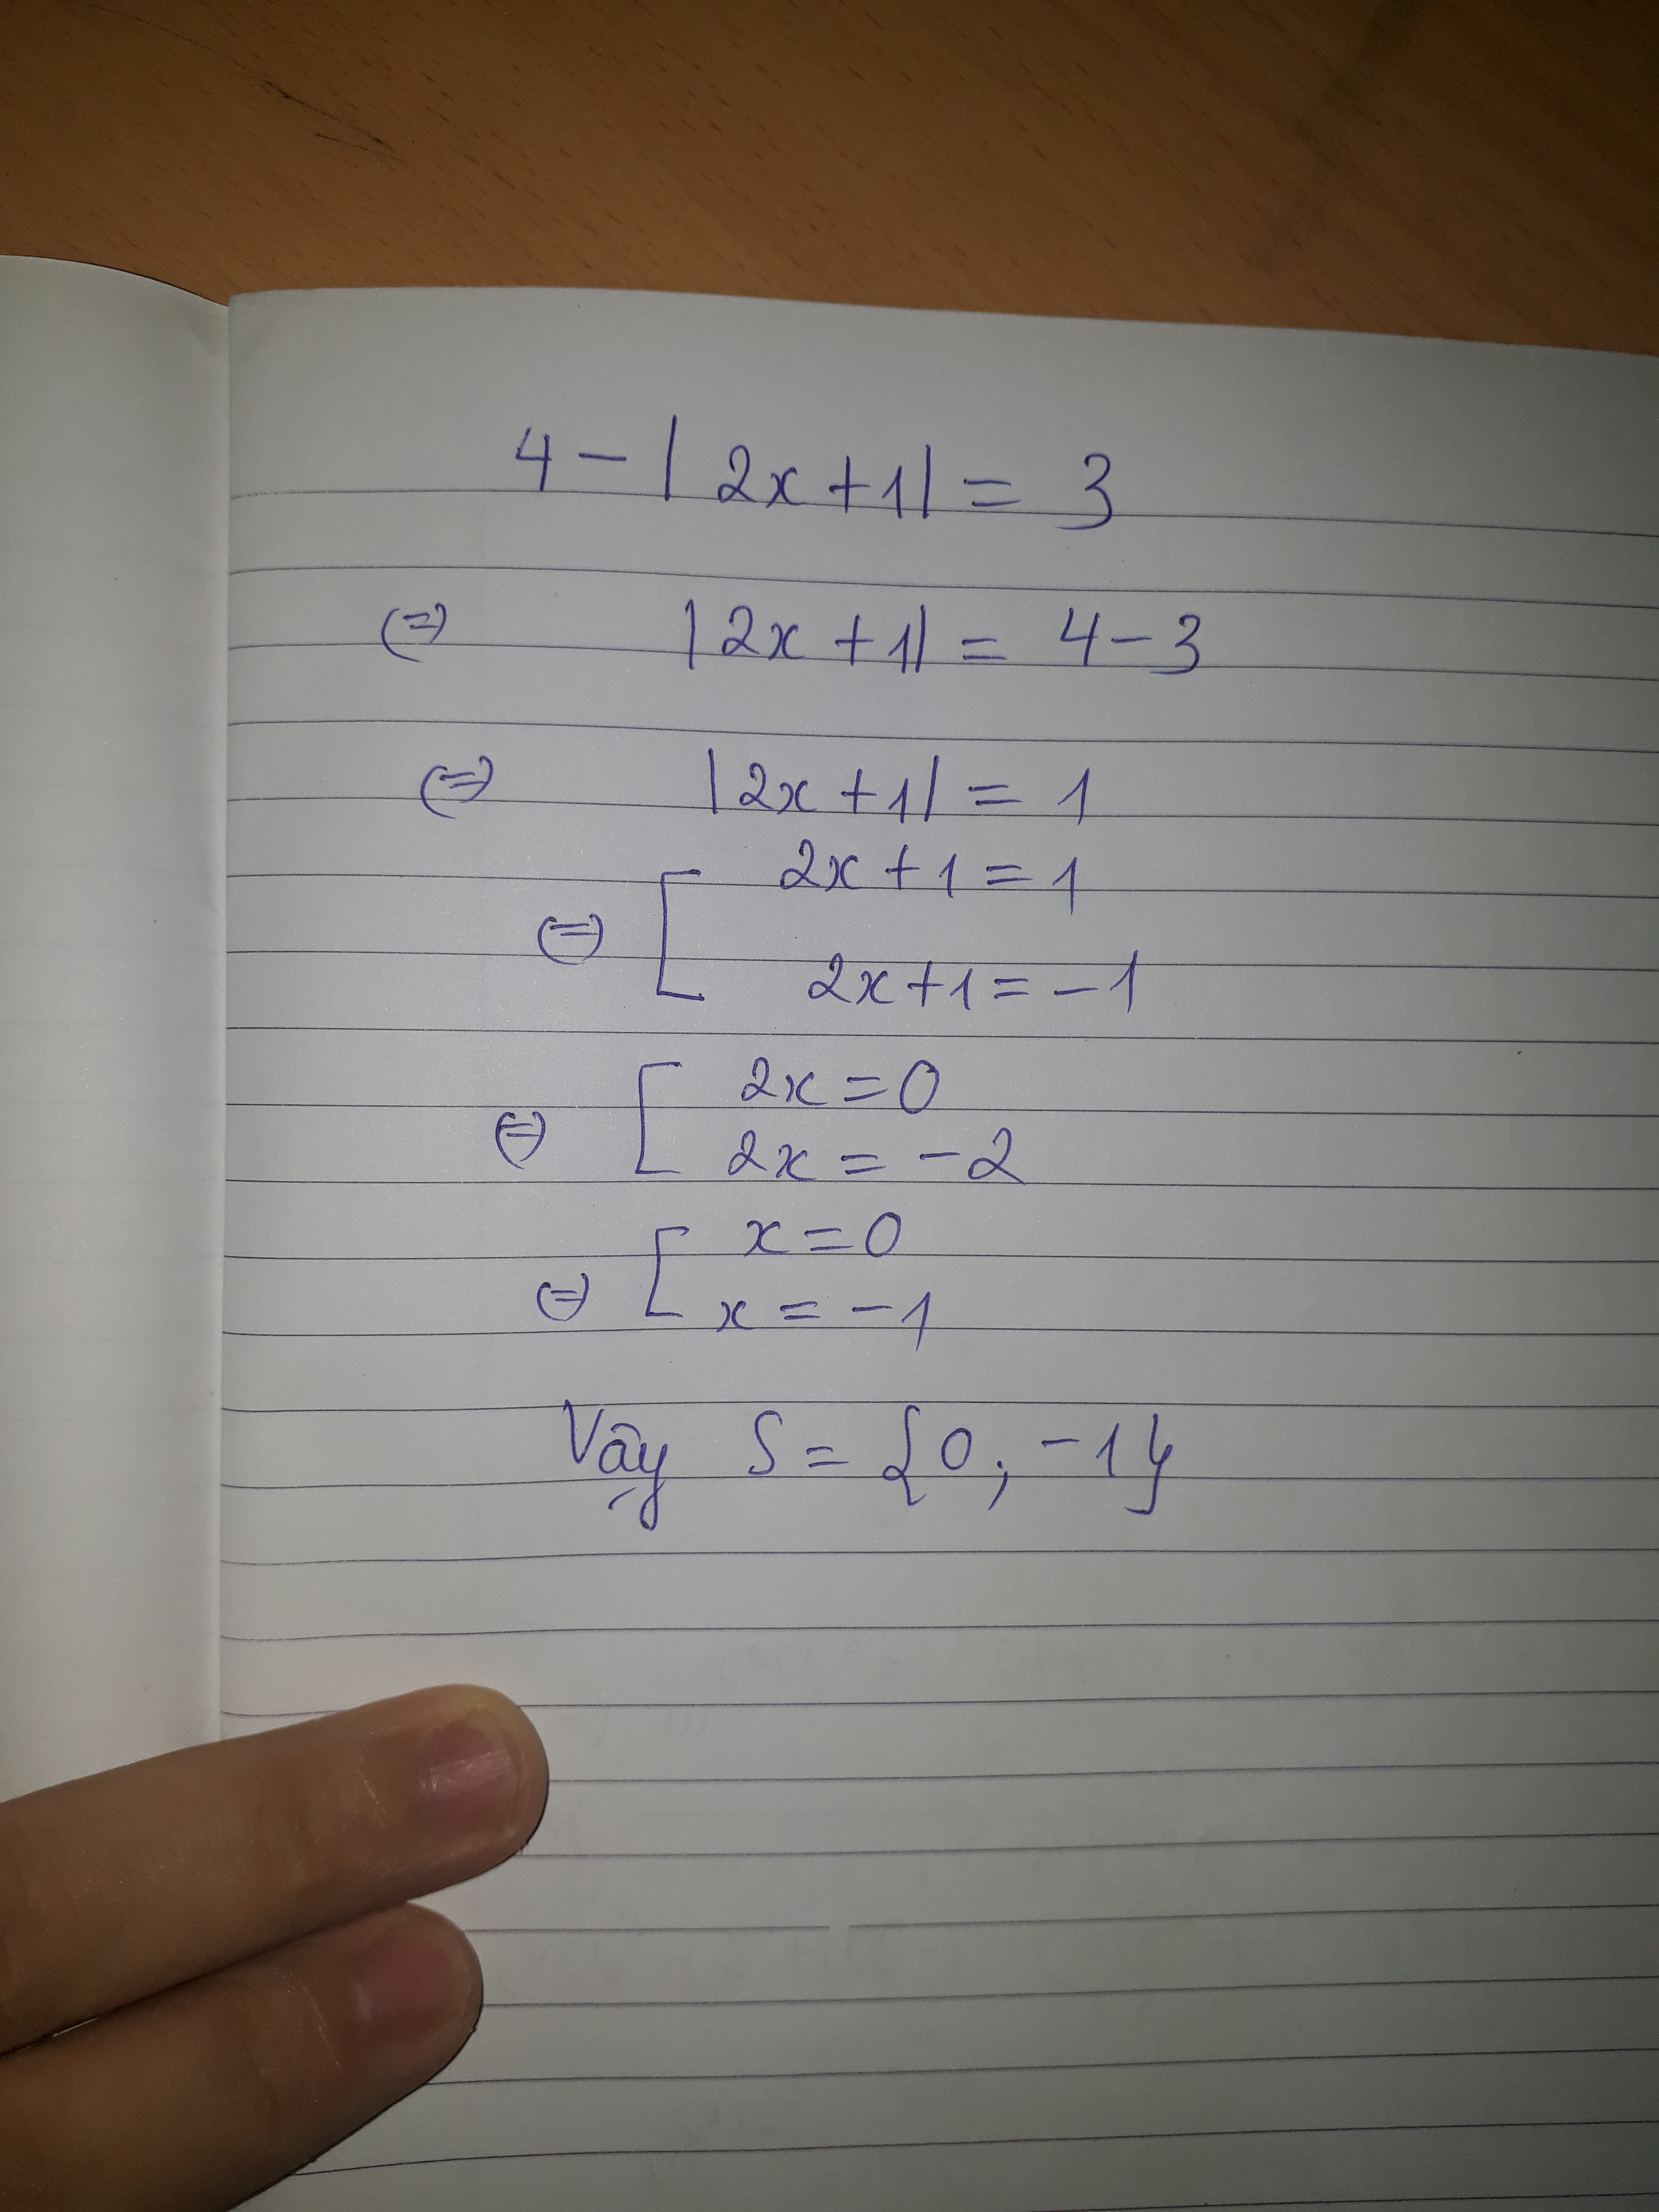 4 - | 2x + 1 | = 3
(=) | 2x + 1 | = 4 - 3
(=) | 2x + 1 | = 1
(=) [ 2x + 1 = 1
2x + 1 = -1
(=) [ 2x = 0
2x = -2
(=) [ x = 0
x = -1
Vậy S = {0; -1}